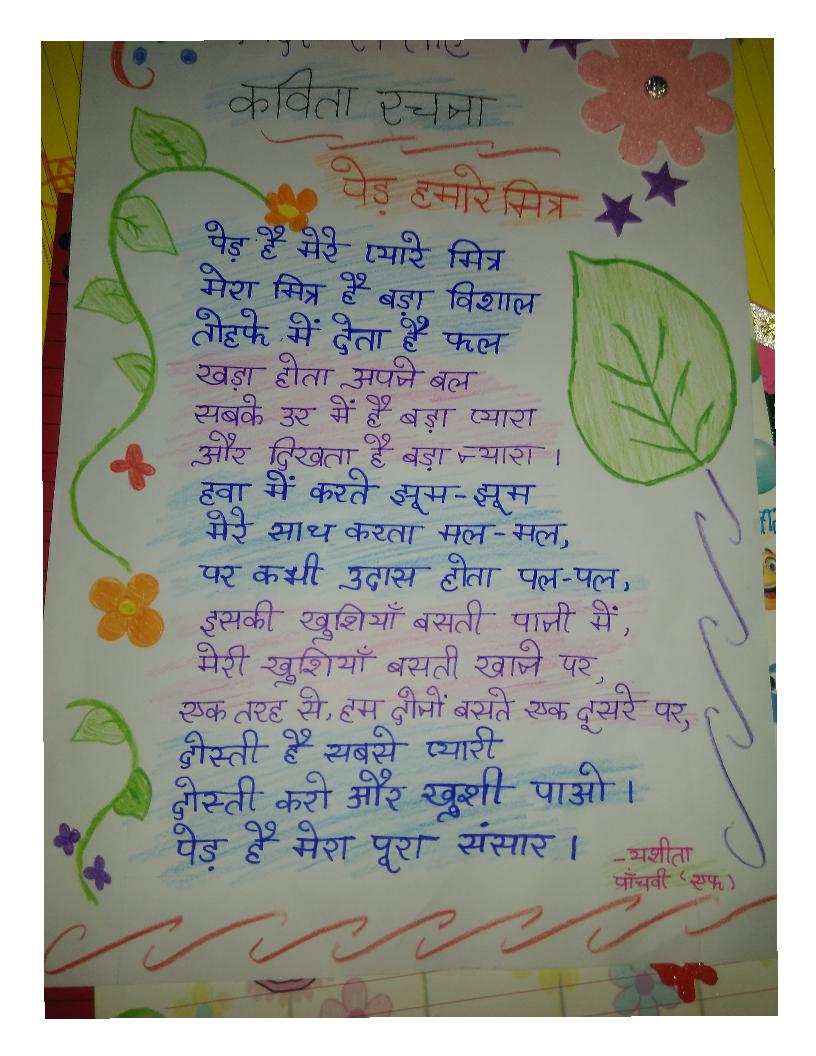 कविता रचना
पेड़ हमारे मित्र
पेड़ है मेरे प्यारे मित्र
मेरा मित्र है बड़ा विशाल
तोहफे में देता है फल
खड़ा होता अपने बल
सबके उर में है बड़ा प्यारा
और दिखता है बड़ा न्यारा ।
हवा में करते झूम-झूम
मेरे साथ करता मल-मल,
पर कभी उदास होता पल-पल,
इसकी खुशियाँ बसती पानी में,
मेरी खुशियाँ बसती खाने पर,
एक तरह से, हम दोनों बसते एक दूसरे पर,
दोस्ती है सबसे प्यारी
दोस्ती करो और खूशी पाओ ।
पेड़ है मेरा पूरा संसार ।
-यशीता
पाँचवी 'एफ)